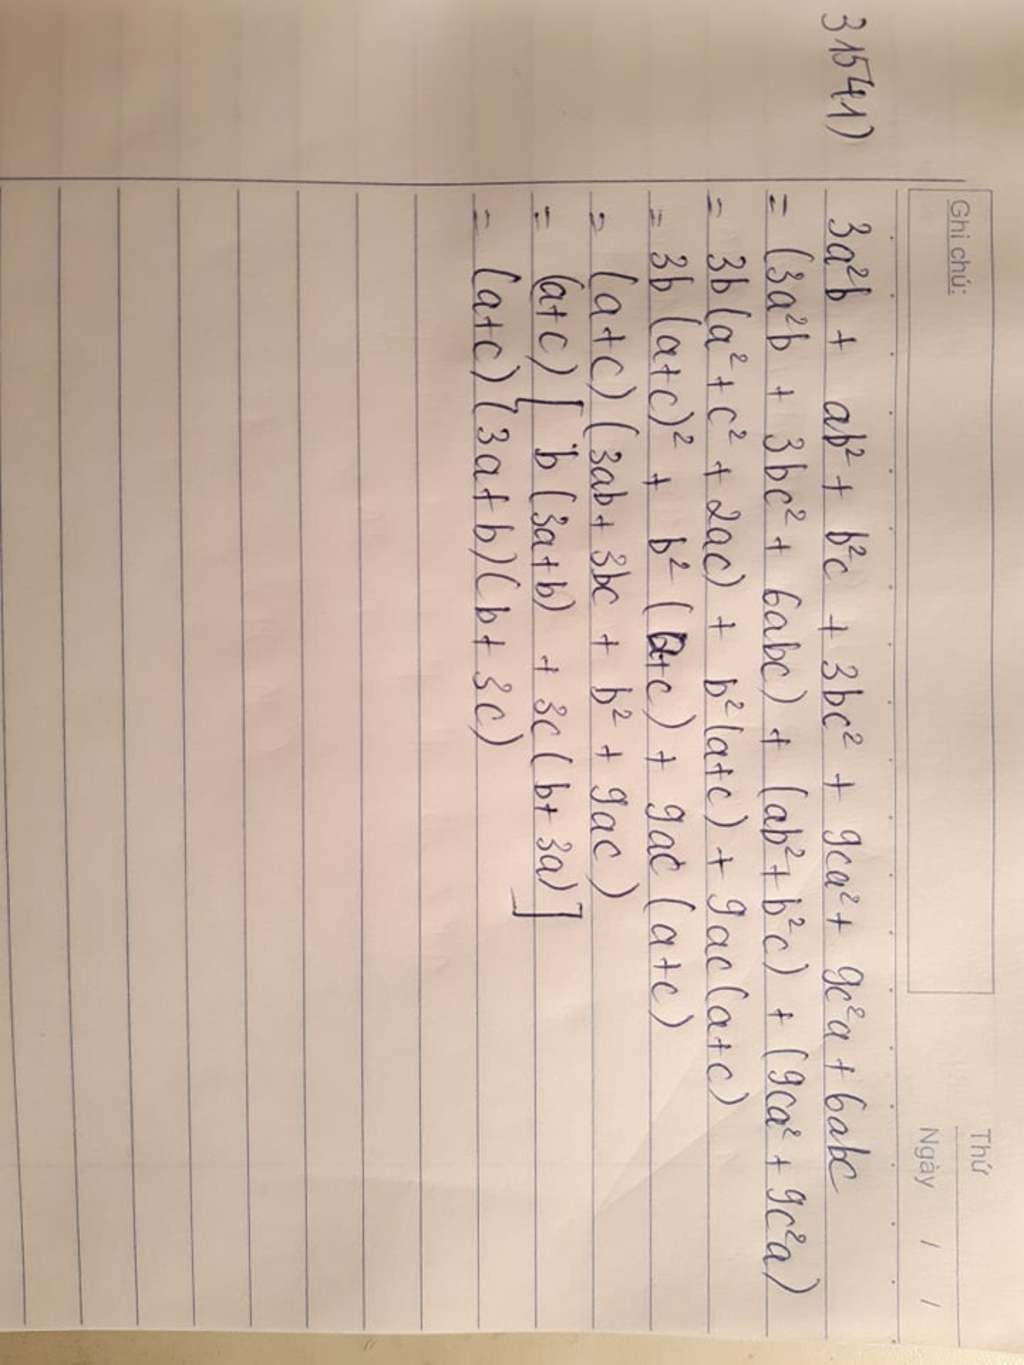 Thứ
Ghi chú:
Ngày / /
31541)
3a²b + ab² + b²c + 3bc² + 9ca² + 9c²a + 6abc
= (3a²b + 3bc² + 6abc) + (ab² + b²c) + (9ca² + 9c²a)
= 3b(a² + c² + 2ac) + b²(a+c) + 9ac(a+c)
= 3b(a+c)² + b²(a+c) + 9ac(a+c)
= (a+c)(3ab + 3bc + b² + 9ac)
= (a+c)[b(3a+b) + 3c(b+3a)]
= (a+c)(3a+b)(b+3c)